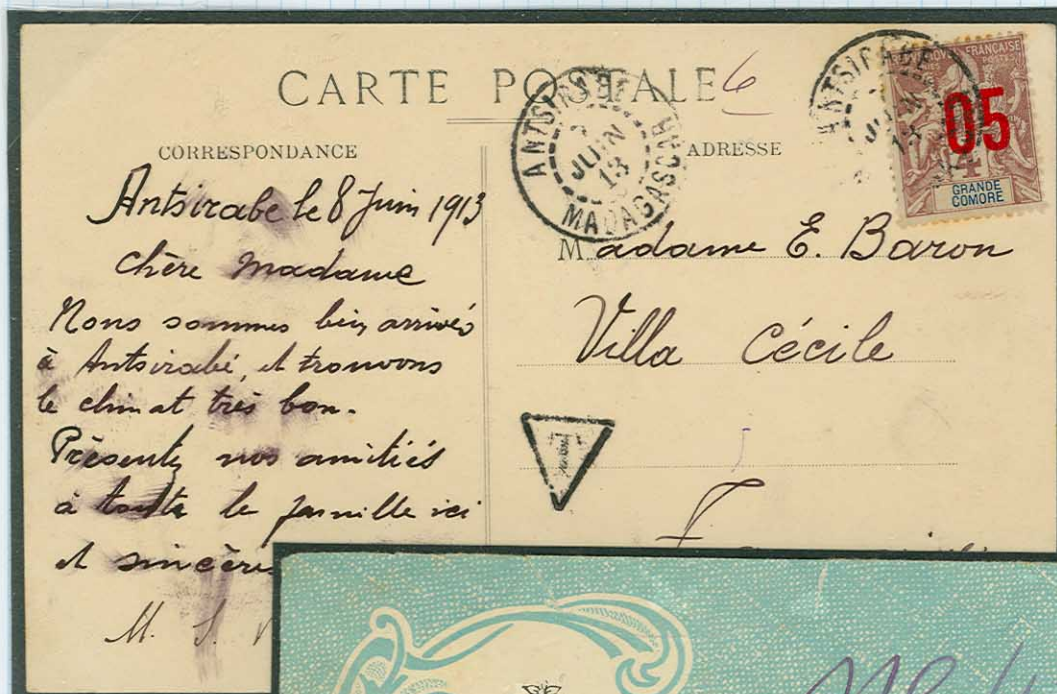 CARTE POSTALE 6
CORRESPONDANCE
ADRESSE
ANTSIRABE
JUIN
13
MADAGASCAR
ANTSIRABE
JUIN
13
FRANÇAISE
POSTES
05
GRANDE
COMORE
Antsirabe le 8 Juin 1913
chère Madame
Nous sommes bien arrivés
à Antsirabé, et trouvons
le climat très bon.
Présentez nos amitiés
à toute la famille ici
et sincères
M. S.
Madame E. Baron
Villa Cécile
T